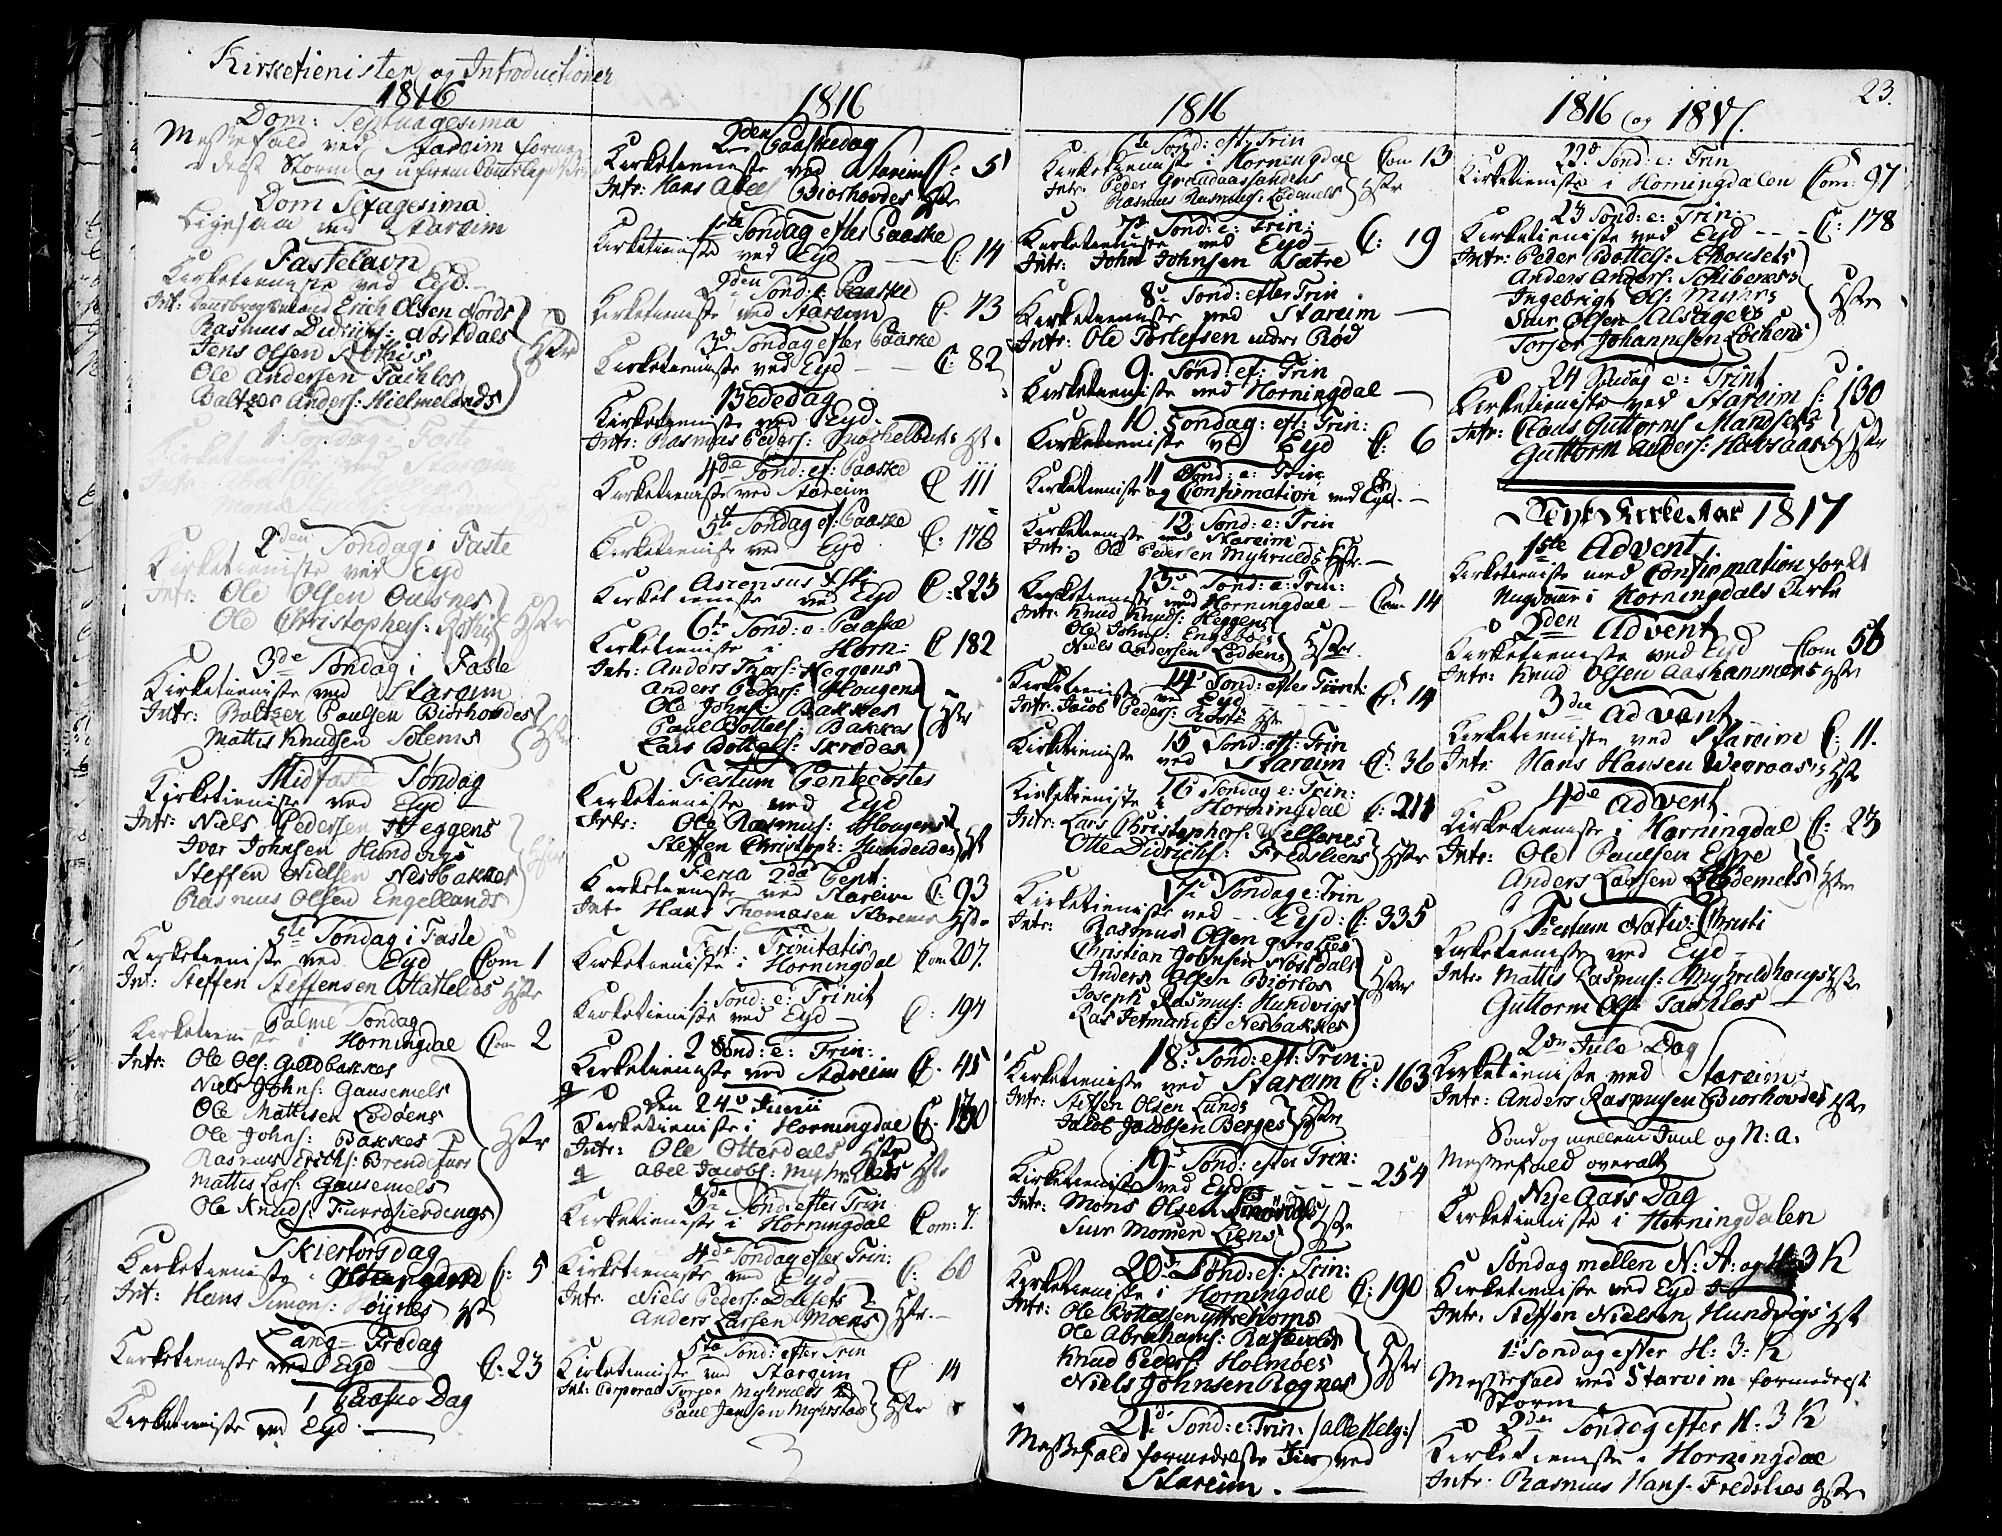 Kirketienister og Introductioner
1816
Dom: Septuagesima
Messefald ved Stareim formedelst Storm og
Dom Sexagesima
Ligesaa ved Stareim
Fastelavn
Kirketieniste ved Eyd.
Int: Erich Olsen Nords
Rasmus Didrichs: Nosdals
Jens Olsen
Ole Andersen Tachlos
Baltzer Anders: Hielmelands
1 Søndag i Faste
Kirketieniste ved Stareim
2den Søndag i Faste
Kirketieniste ved Eyd
Intr: Ole Olsen Ousnes
Ole Christophers: HStr
3de Søndag i Faste
Kirketieniste ved Stareim
Intr: Baltzer Paulsen Biorhovdes
Mattis Knudsen Solems
Midfaste Søndag
Kirketieniste ved Eyd
Intr: Niels Pedersen Heggens
Iver Johnsen Hundvigs
Steffen Nielsen Nesbakkes
Rasmus Olsen Engellands
5te Søndag i Faste
Kirketieniste ved Eyd Com 1
Int: Steffen Steffensen Hatlelids HStr
Palme Søndag
Kirketieniste i Horningdal Com 2
Intr: Ole Ols: Guldbakkes
Niels Johns: Gausemels
Ole Mattisen Lødøens
Ole Johns: Bakkes
Rasmus Erichs: Brendefurs
Mattis Lars: Gausemels
Ole Knuds: Furrofierdengs
HStr
Skiertorsdag
Kirketieniste i C: 5
Int: Hans Simons: HSt
Lang-Fredag
Kirketieniste ved Eyd C: 23
1 Paaske Dag
Kirketieniste ved Eyd
1816
2den Paaskedag
Kirketieniste ved Stareim C: 5
Intr: Hans Abels Biorhovdes HStr
1ste Søndag efter Paaske
Kirketieniste ved Eyd C: 14
2den Sønd: e: Paaske
Kirketieniste ved Stareim C. 73
3d Søndag efter Paaske
Kirketieniste ved Eyd C: 82
Bededag
Kirketieniste ved Eyd.
Intr: Rasmus Peders: HSt.
4de Sønd: ef: Paaske
Kirketieniste ved Stareim C 111
5te Søndag ef: Paaske
Kirketieniste ved Eyd C. 178
Ascensus Xsti
Kirketieniste ved Eyd C: 223
6te Sønd: e: Paaske
Kirketieniste i Horn: C 182
Intr: Anders Heggens
Anders Peders: Hougens
Ole Johns: Bakkes
Paul Bottels: Bakkes
Lars Bottels: Skrødes
HStr
Festum Pentecostes
Kirketieniste ved Eyd
Intr: Ole Rasmus: Hougens
Steffen Christoph: Hundeides HSt
Feria 2da Pent:
Kirketieniste ved Stareim C: 93
Int Hans Thomasen Stareims HStr
Fest: Trinitatis
Kirketieniste i Horningdal Com 207.
1. Sønd: e: Trinit
Kirketieniste ved Eyd C: 194
2 Sønd: e: Trin:
Kirketieniste ved Stareim C. 45
den 24de Junii
Kirketieniste i Horningdal C.
Intr: Ole Otterdals HStr
Abel Jacobs: HStr
3de Sønd: efter Trin
Kirketieniste i Horningdal Com: 7.
4de Søndag efter Trin:
Kirketieniste ved Eyd C: 60
Intr. Niels Peders:
Anders Larsen Moens HStr.
5te Sønd: efter Trin
Kirketieniste ved Stareim C 14
Intr: Corporal Torger Myhrulds
Paul Jensen HStr
1816
6te Sønd: eft: Trin
Kirketieniste i Horningdal Com 13
Intr: Peder
Rasmus Rasmus: Lødemels HStr
7de Sønd: e: Trin:
Kirketieniste ved Eyd C: 19
Intr: John Johnsen Sætre
8de Sønd: efter Trin.
Kirketieniste ved Stareim
Intr: Ole Torlefsen nedre Rød
9. Sønd: ef: Trin
Kirketieniste ved Horningdal
10 Søndag: eft: Trin:
Kirketieniste ved Eyd C: 6
11 Sønd: e: Trin
Kirketieniste og Confirmation ved Eyd.
12. Sønd: e: Trin
Kirketieniste ved Stareim
Intr: Ole Pedersen Myhrulds HStr.
13de Sønd: e: Trin:
Kirketieniste ved Horningdal Com 14
Intr: Knud Knuds: Heggens
Ole Johns: Engebøes
Niels Andersen Lødøens HStr.
14de Sønd: efter Trint:
Kirketieniste ved Eyd C: 14
Intr. Jacob Peders: HStr
15 Sønd: eft: Trin
Kirketieniste ved Stareim C: 36
16 Søndag e: Trin:
Kirketieniste i Horningdal C: 214
Intr: Lars Christophers:
Otte Didrichs: Fredsliens HStr
17de Søndag e: Trin
Kirketieniste ved Eyd: C: 335
Intr: Rasmus Olsen
Christian Johnsen Nosdals
Anders Biørlos
Joseph Rasmus: Hundvigs
Ras Jetmunds: Nesbakkes
HStr
18de Sønd: eft: Trin:
Kirketieniste ved Stareim C: 163
Intr: Steffen Olsen Lunds
Jacob Jacobsen Berges HStr
19de Sønd: efter Trin:
Kirketieniste ved Eyd 254
Intr: Mons Olsen
Siur Monsen Liens HStr
20de Sønd: ef: Trin:
Kirketieniste i Horningdal C: 190
Intr: Ole Bottelsen Yttrehorns
Ole Abrahams:
Knud Peders: Holmøes
Niels Johnsen Rognes
HStr
21de Sønd: e: Trin. /alle Helg:/
Messefald formedelst ved
Stareim.
1816 og 1817.
23.
22d Sønd: e: Trin
Kirketieniste i Horningdalen Com: 97
23 Sønd: e: Trin:
Kirketieniste ved Eyd C: 178
Intr: Peder Bottels:
Anders Anders: Skibenes
Ingebrigt Ols:
Siur Olsen Alsagers
Torger Johannesen Løckens
HStr
24 Søndag e: Trint
Kirketieniste ved Stareim C: 130
Intr: Claus Guttorms
Guttorm Anders: HStr
Nyt Kirke Aar 1817
1ste Advent
Kirketieniste med Confirmation for
i Horningdals Kirke
2den Advent
Kirketieniste ved Eyd Com 56
Intr: Knud Olsen Aashammers HStr
3die Advent
Kirketieniste ved Stareim C: 11.
Intr: Hans Hansen HStr
4de Advent
Kirketieniste i Horningdal C: 23
Intr: Ole Paulsen
Anders Larsen Lødemels HStr
Festum Nativ: Christi
Kirketieniste ved Eyd
Intr: Mattis Rasmus: Myhruldhaugs HStr
Guttorm Ols: Tachlos
2den Jule Dag
Kirketieniste ved Stareim
Intr: Anders Rasmusen Biorhovdes HStr
Søndag mellem Juul og N: a:
Messefald overalt
Nye Aars Dag
Kirketieniste i Horningdalen
Søndag mellem N: A: og H 3 K
Kirketieniste ved Eyd
Intr: Steffen Nielsen Hundvigs HSt
1ste Søndag efter H: 3: K
Messefald ved Stareim formedelst
Storm
2den Søndag efter H: 3 K
Kirketieniste i Horningdal
Intr: Rasmus Hans: Fredslies HStr